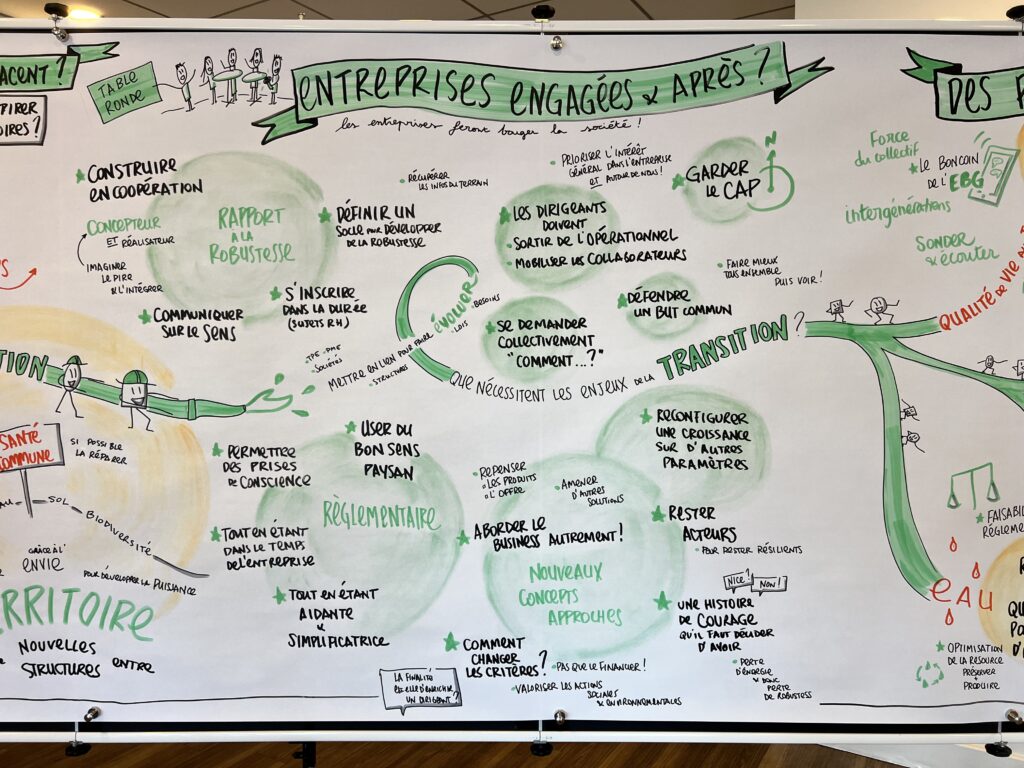 ACENT ?
TABLE
RONDE
ENTREPRISES ENGAGÉES & APRÈS ?
les entreprises feront bouger la société !
DES
CONSTRUIRE
EN COOPÉRATION
CONCEPTEUR
ET RÉALISATEUR
IMAGINER
LE PIRE
& L'INTÉGRER
COMMUNIQUER
SUR LE SENS
RAPPORT
A LA
ROBUSTESSE
S'INSCRIRE
DANS LA DURÉE
(SUJETS RH)
DÉFINIR UN
SOCLE POUR DÉVELOPPER
DE LA ROBUSTESSE
RÉCUPÉRER
LES INFOS DU TERRAIN
PRIORISER L'INTÉRÊT
GÉNÉRAL DANS L'ENTREPRISE
ET AUTOUR DE NOUS !
GARDER
LE CAP
N
LES DIRIGEANTS
DOIVENT
SORTIR DE L'OPÉRATIONNEL
MOBILISER LES COLLABORATEURS
FAIRE MIEUX
TOUS ENSEMBLE
PUIS VOIR !
DÉFENDRE
UN BUT COMMUN
SE DEMANDER
COLLECTIVEMENT
"COMMENT...?"
TPE - PME
SOCIÉTÉS
STRUCTURES
METTRE EN LIEN POUR FAIRE ÉVOLUER
BESOINS
LOIS
QUE NÉCESSITENT LES ENJEUX DE LA TRANSITION ?
Force
du collectif
LE BONCOIN
DE L'EBG
intergénérations
SONDER
& écouter
QUALITÉ DE VIE
TION
SANTÉ
COMMUNE
SI POSSIBLE
LA RÉPARER
SOL
BIODIVERSITÉ
GRÂCE À L'
ENVIE
POUR DÉVELOPPER LA PUISSANCE
ERRITOIRE
NOUVELLES
STRUCTURES ENTRE
PERMETTRE
DES PRISES
DE CONSCIENCE
USER DU
BON SENS
PAYSAN
RÈGLEMENTAIRE
TOUT EN ÉTANT
DANS LE TEMPS
DE L'ENTREPRISE
TOUT EN ÉTANT
AIDANTE
&
SIMPLIFICATRICE
REPENSER
LES PRODUITS
L'OFFRE
AMENER
D'AUTRES
SOLUTIONS
RECONFIGURER
UNE CROISSANCE
SUR D'AUTRES
PARAMÈTRES
ABORDER LE
BUSINESS AUTREMENT !
NOUVEAUX
CONCEPTS
APPROCHES
RESTER
ACTEURS
POUR RESTER RÉSILIENTS
NICE ?
NON !
UNE HISTOIRE
DE COURAGE
QU'IL FAUT DÉCIDER
D'AVOIR
PERTE
D'ÉNERGIE
& DONC
PERTE
DE ROBUSTESS
COMMENT
CHANGER
LES CRITÈRES ?
PAS QUE LE FINANCIER !
VALORISER LES ACTIONS
SOCIALES
& ENVIRONNEMENTALES
LA FINALITÉ
EST-ELLE D'ENRICHIR
UN DIRIGEANT ?
FAISABIL
RÉGLEME
EAU
OPTIMISATION
DE LA RESOURCE
PRÉSERVER
+
PRODUIRE